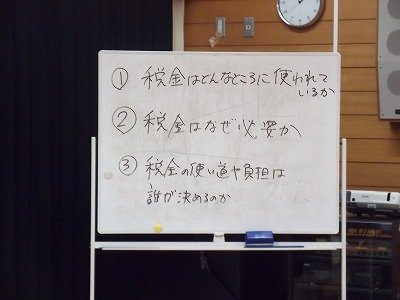 ① 税金はどんなところに使われて
いるか
② 税金はなぜ必要か
③ 税金の使い道や負担は
誰が決めるのか